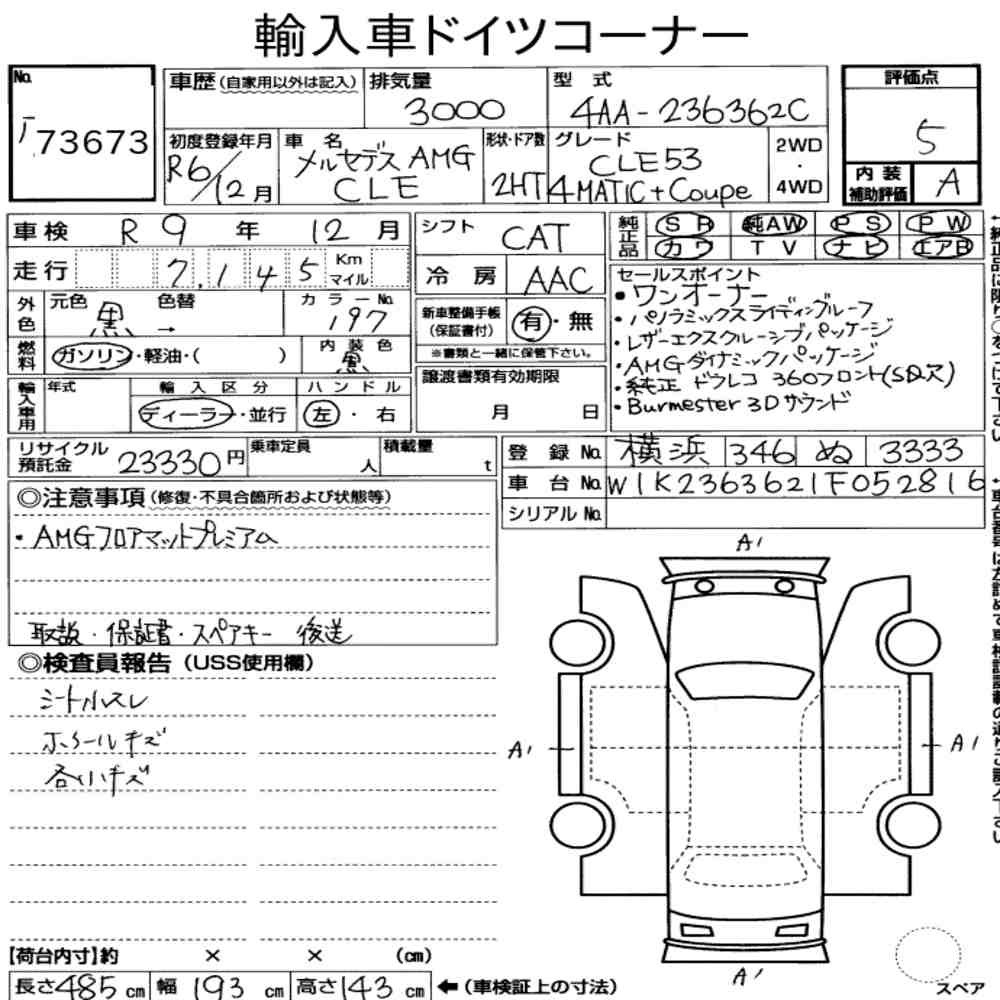 輸入車ドイツコーナー
No.
73673
車歴 (自家用以外は記入)
排気量
3000
型 式
4AA-236362C
評価点
5
内装補助評価
A
初度登録年月
R6/12月
車 名
メルセデスAMG
CLE
形状・ドア数
2HT
グレード
CLE53
4MATIC+Coupe
2WD
・
4WD
車検 R 9 年 12 月
走行 7.145 Km マイル
シフト
CAT
冷 房
AAC
純正品
SR 純AW PS PW
カワ TV ナビ エアB
外色
元色 黒
色替 →
カラーNo.
197
燃料
ガソリン・軽油・( )
内装色
黒
輸入車用
年式
輸入区分
ディーラー・並行
ハンドル
左・右
新車整備手帳
(保証書付)
有・無
※書類と一緒に保管下さい。
譲渡書類有効期限
月 日
セールスポイント
・ワンオーナー
・パノラミックスライディングルーフ
・レザーエクスクルーシブパッケージ
・AMGダイナミックパッケージ
・純正ドラレコ 360フロント(SD欠)
・Burmester 3Dサウンド
リサイクル
預託金
23330円
乗車定員
人
積載量
t
登 録 No. 横浜 346 ぬ 3333
車 台 No. W1K2363621F052816
シリアル No.
◎注意事項 (修復・不具合箇所および状態等)
・AMGフロアマットプレミアム
取説・保証書・スペアキー 後送
◎検査員報告 (USS使用欄)
シートスレ
ホイールキズ
各小キズ
A1
A1
A1
A1
スペア
【荷台内寸】約 × × (cm)
長さ485cm 幅 193 cm 高さ143 cm ←(車検証上の寸法)